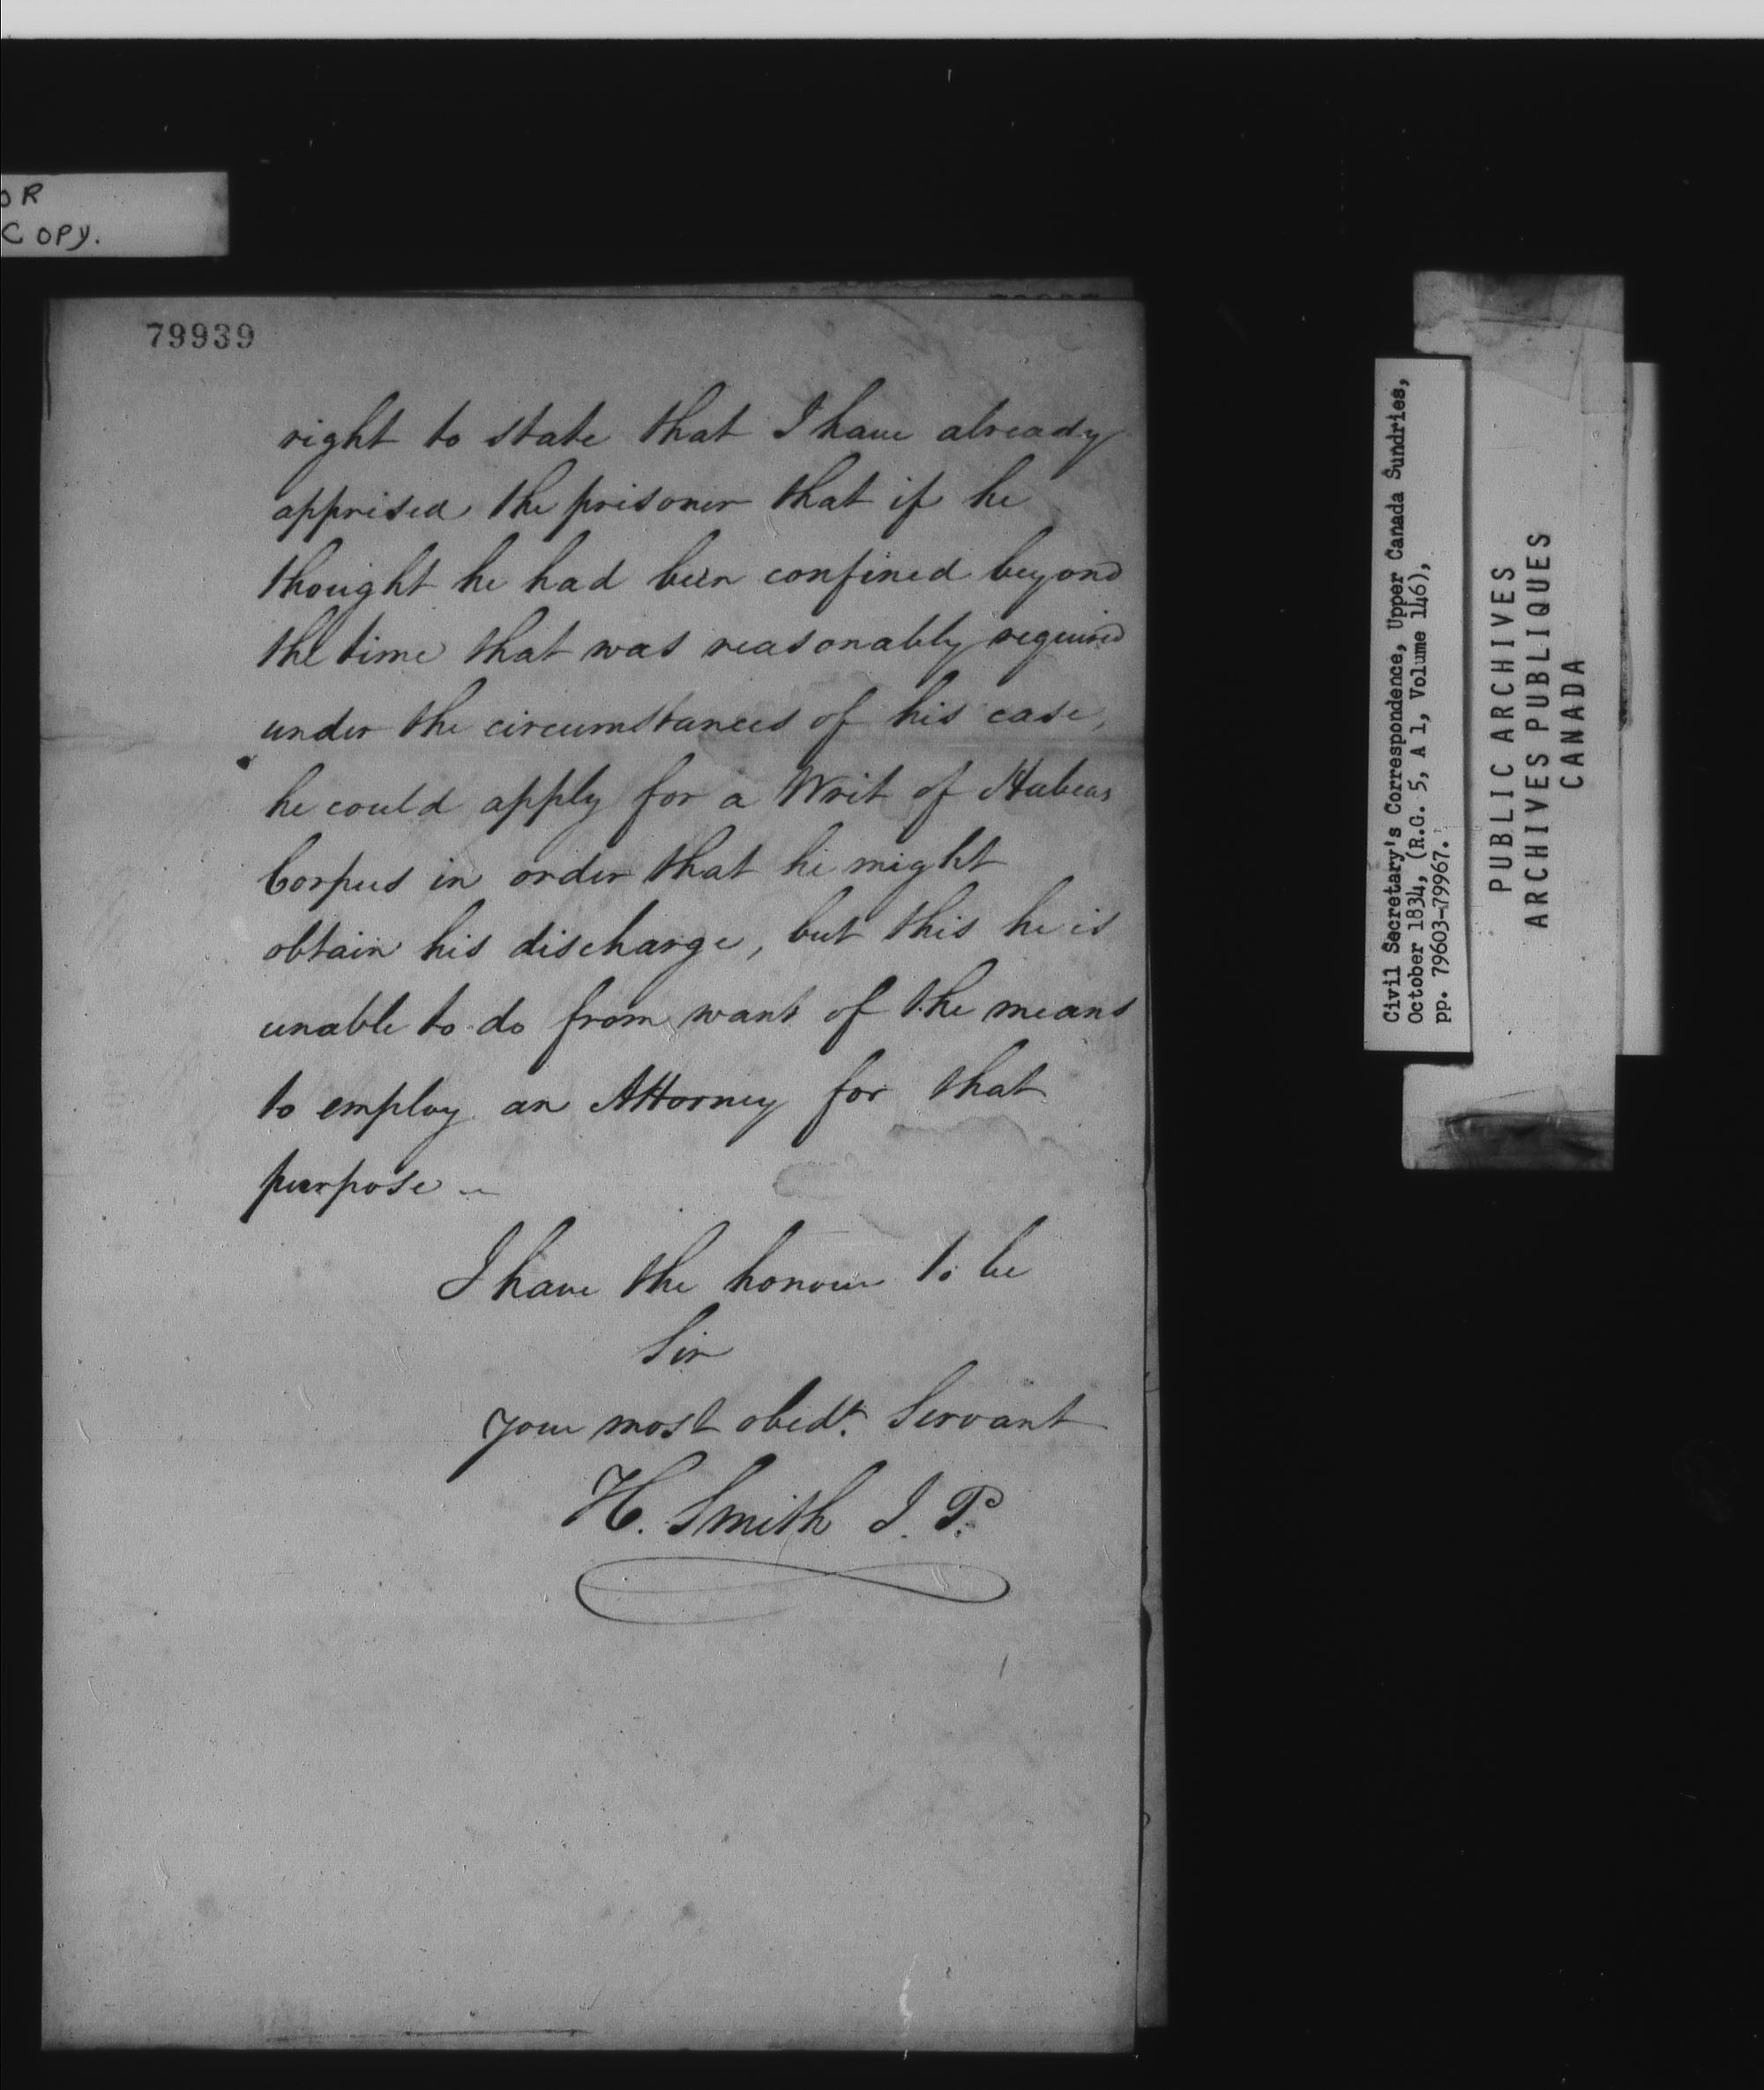 OR
COPY.
79939
right to state that I have already
apprised the prisoner that if he
thought he had been confined beyond
the time that was reasonably required
under the circumstances of his case,
he could apply for a Writ of Habeas
Corpus in order that he might
obtain his discharge, but this he is
unable to do from want of the means
to employ an Attorney for that
purpose –
I have the honour to be
Sir
your most obedt. Servant
H. Smith J. P.
Civil Secretary's Correspondence, Upper Canada Sundries,
October 1834, (R.G. 5, A 1, Volume 146),
pp. 79603-79967.
PUBLIC ARCHIVES
ARCHIVES PUBLIQUES
CANADA